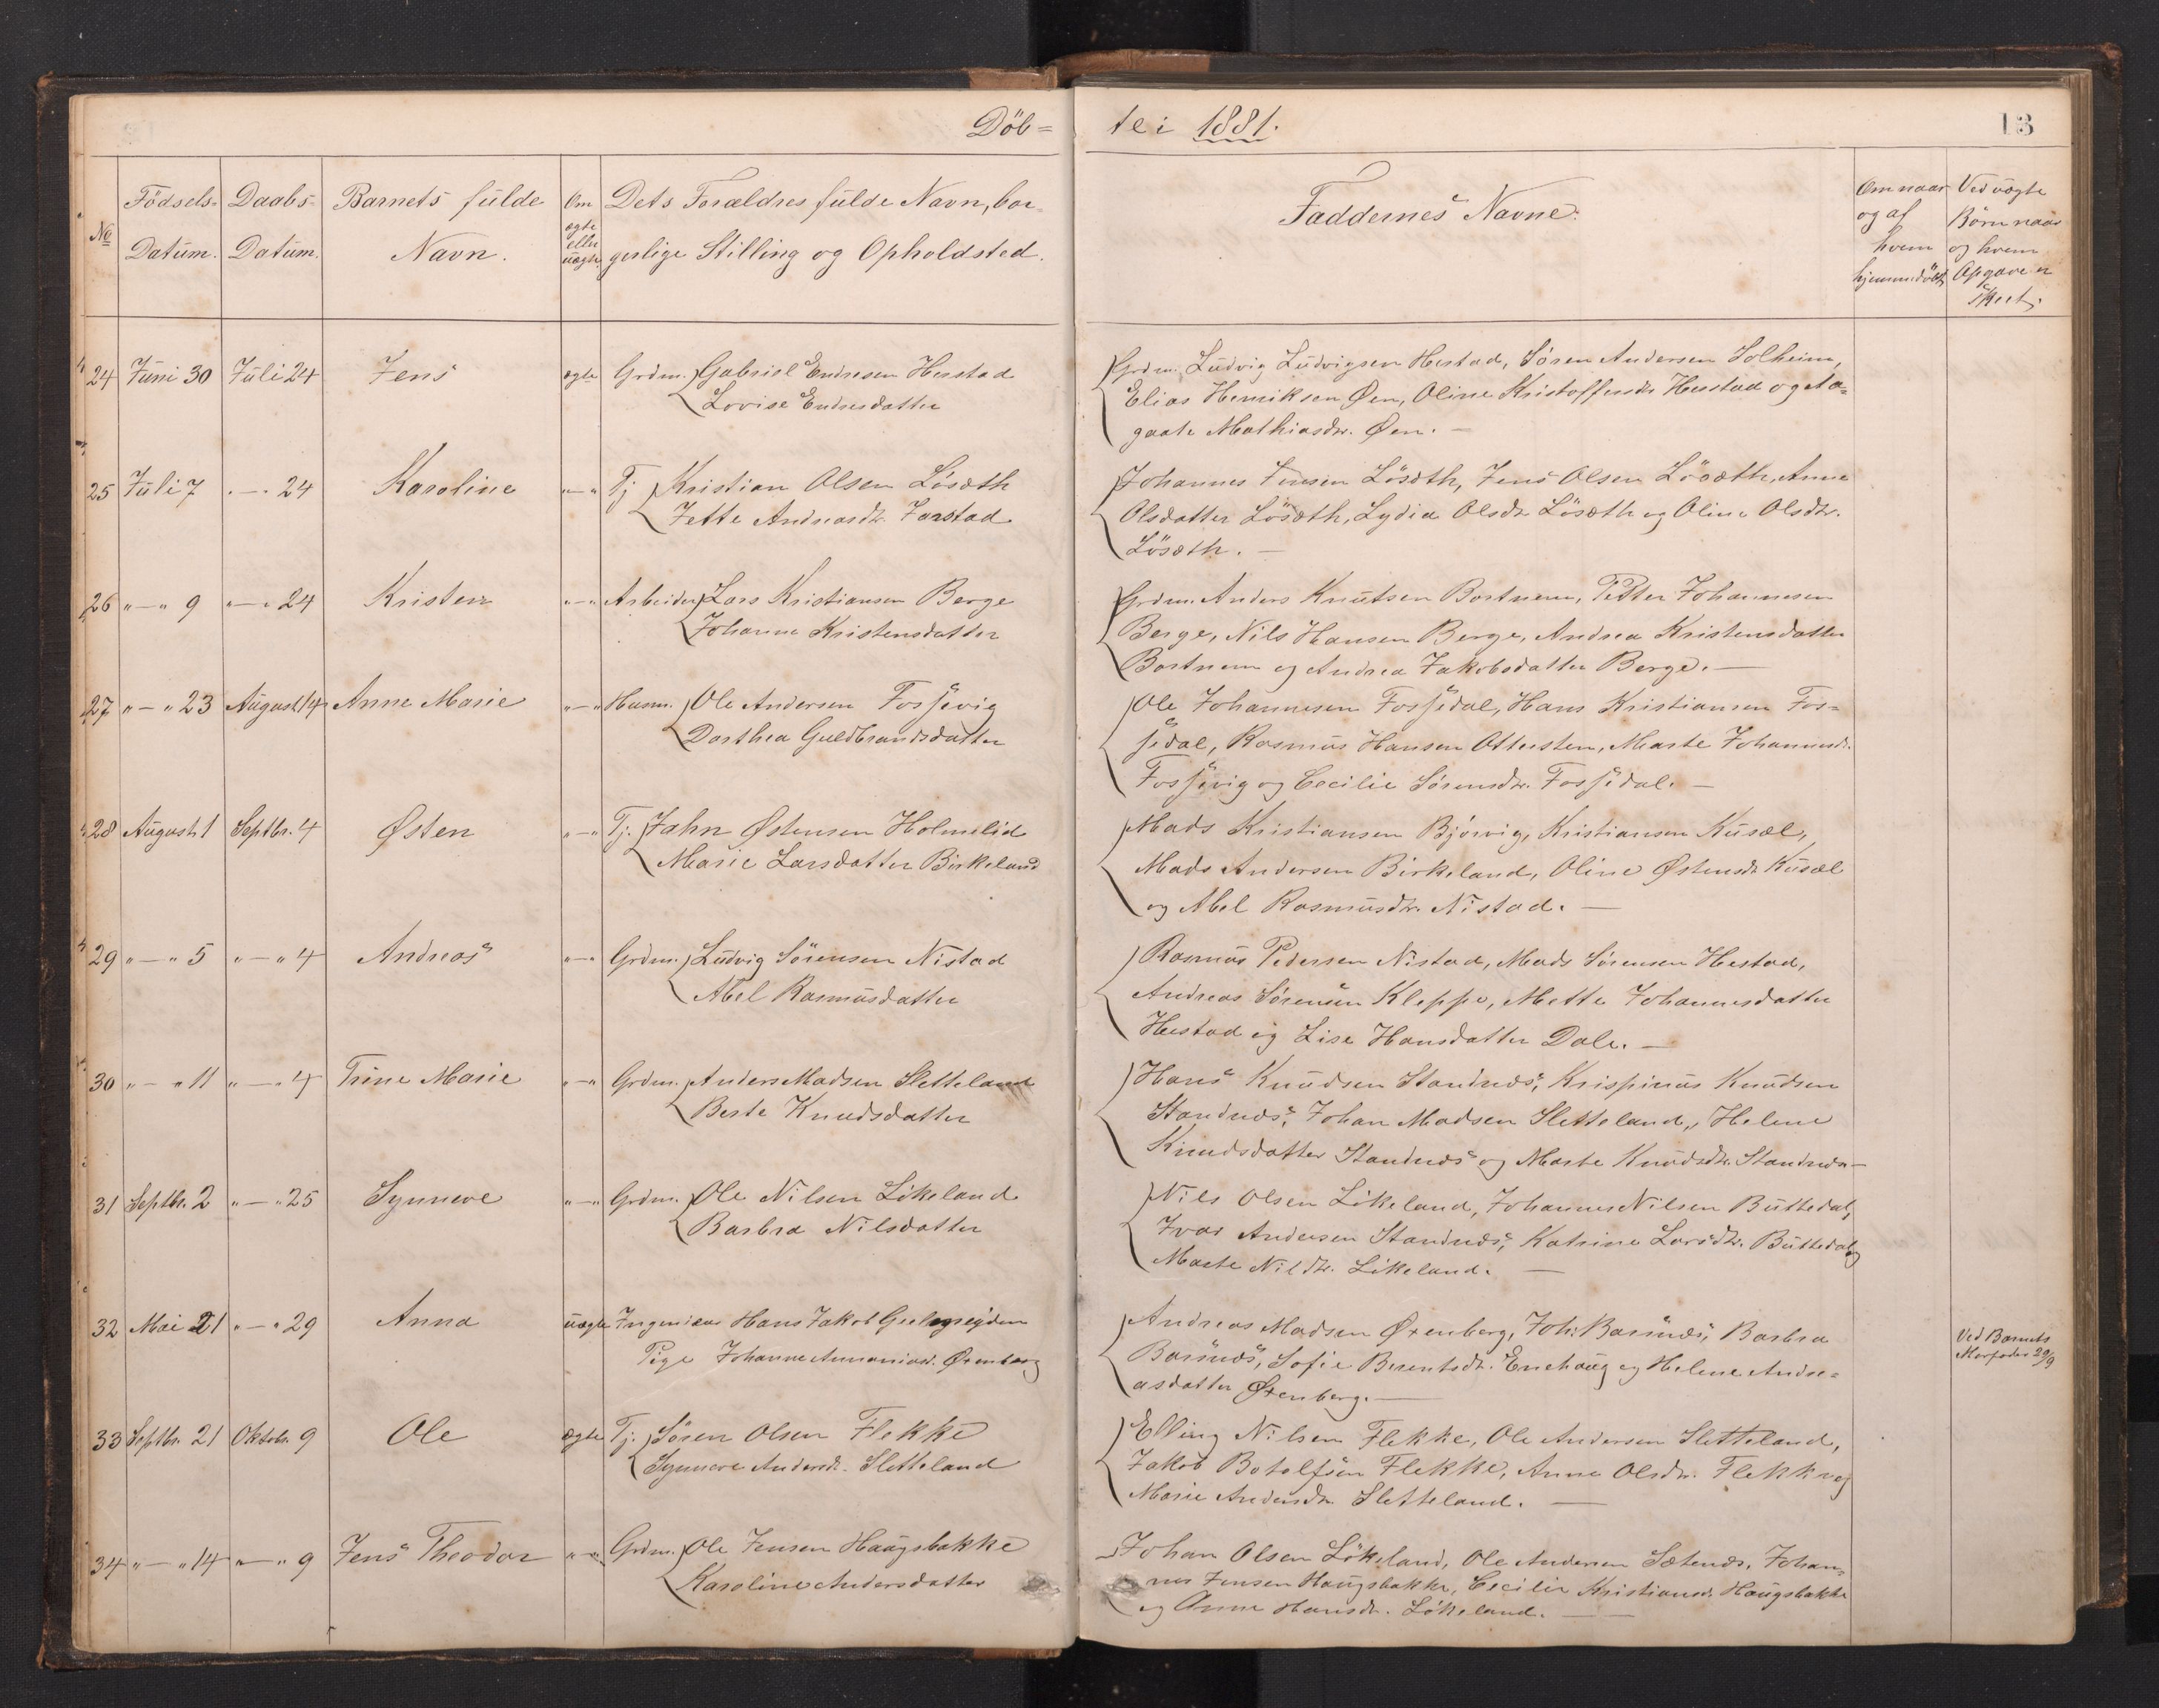 Döb=
te i 1881.
13
No
Födsels-
Datum.
Daabs-
Datum.
Barnets fulde
Navn.
Om
ægte
eller
uægte.
Dets Forældres fulde Navn, bor-
gerlige Stilling og Opholdsted.
Faddernes Navne.
Om naar
og af
hvem
hjemmedöbt
Ved uægte
Börn naar
og hvem
Opgave er
skeet.
24 Juni 30 Juli 24 Jens ægte Grdm. Gabriel Endresen Herstad
Lovise Endresdatter
Grdm. Ludvig Ludvigsen Hestad, Sören Andersen Solheim,
Elias Henriksen Øen, Oline Kristoffersdtr Hestad og Aa-
gaate Mathiasdtr. Øen. —
25 Juli 7 " — " 24 Karoline " — " Tj Kristian Olsen Lösæth
Jette Andreasdtr. Jarstad
Johannes Jensen Lösæth, Jens Olsen Lösæth, Anne
Olsdatter Lösæth, Lydia Olsdtr Lösæth og Oline Olsdtr.
Lösæth. —
26 " — " 9 " — " 24 Kristen " — " Arbeider Lars Kristiansen Berge
Johanne Kristensdatter
Grdm. Anders Knutsen Bortnem, Petter Johannesen
Berge, Nils Hansen Berge, Andrea Kristensdatter
Bortnem og Andrea Jakobsdatter Berge. —
27 " — " 23 August 14 Anne Marie " — " Husm. Ole Andersen Fossevig
Dorthea Guldbrandsdatter
Ole Johannesen Fossedal, Hans Kristiansen Fos-
sedal, Rasmus Hansen Ottersten, Marte Johannesdtr.
Fossevig og Cecilie Sörensdtr. Fossedal. —
28 August 1 Septbr. 4 Østen " — " Tj. Jahn Østensen Holmelid
Marie Larsdatter Birkeland
Mads Kristiansen Björvig, Kristiansen Kusæl,
Mads Andersen Birkeland, Oline Østensdtr Kusæl
og Abel Rasmusdtr. Nistad. —
29 " — " 5 " — " 4 Andreas " — " Grdm. Ludvig Sörensen Nistad
Abel Rasmusdatter
Rasmus Pedersen Nistad, Mads Sörensen Hestad,
Andreas Sörensen Kleppe, Mette Johannesdatter
Hestad og Lise Hansdatter Dale. —
30 " — " 11 " — " 4 Trine Marie " — " Grdm. Anders Madsen Sletteland
Berte Knudsdatter
Hans Knudsen Standnæs, Krispinus Knudsen
Standnæs, Johan Madsen Sletteland, Helene
Knudsdatter Standnæs og Marte Knudsdtr. Standnæs —
31 Septbr. 2 " — " 25 Synneve " — " Grdm. Ole Nilsen Lökeland
Barbra Nilsdatter
Nils Olsen Lökeland, Johannes Nilsen Buttedal,
Ivar Andersen Standnæs, Katrine Larsdtr. Buttedal og
Marte Nilsdtr. Lökeland. —
32 Mai 21 " — " 29 Anna uægte Ingeniør Hans Jakob
Pige Johanne Annaniasd. Øxenberg
Andreas Madsen Øxenberg, Joh: Barsnæs, Barbra
Barsnæs, Sofie Berentsdtr. Enehaug og Helene Andre-
asdatter Øxenberg. —
Ved Barnets
Morfader 29/9
33 Septbr. 21 Oktobr. 9 Ole ægte Tj. Sören Olsen Flekke
Synneve Andersdtr. Sletteland
Elling Nilsen Flekke, Ole Andersen Sletteland,
Jakob Botolfsen Flekke, Anne Olsdtr. Flekke og
Marie Andersdtr. Sletteland. —
34 " — " 14 " — " 9 Jens Theodor " — " Grdm. Ole Jensen Haugsbakke
Karoline Andersdatter
Johan Olsen Lökeland, Ole Andersen Sætenæs, Johan-
nes Jensen Haugsbakke, Cecilie Kristiansd. Haugsbakke
og Anne Hansdtr. Lökeland. —